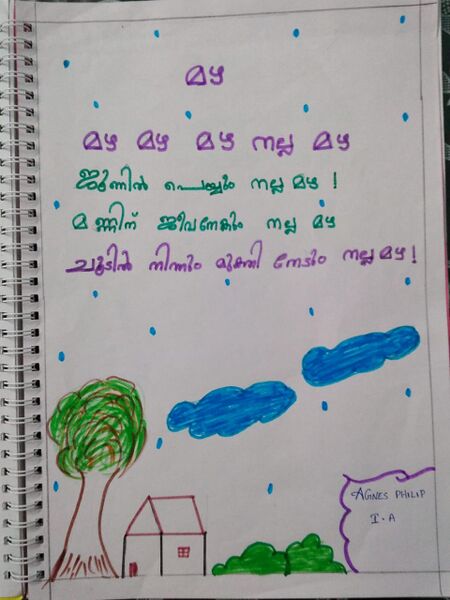 മഴ
മഴ മഴ മഴ നല്ല മഴ
ജൂണിൽ പെയ്യും നല്ല മഴ !
മണ്ണിന് ജീവനേകും നല്ല മഴ
ചൂടിൽ നിന്നും മുക്തി നേടും നല്ല മഴ !
AGNES PHILIP
I-A